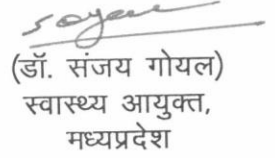 (डॉ. संजय गोयल)
स्वास्थ्य आयुक्त,
मध्यप्रदेश